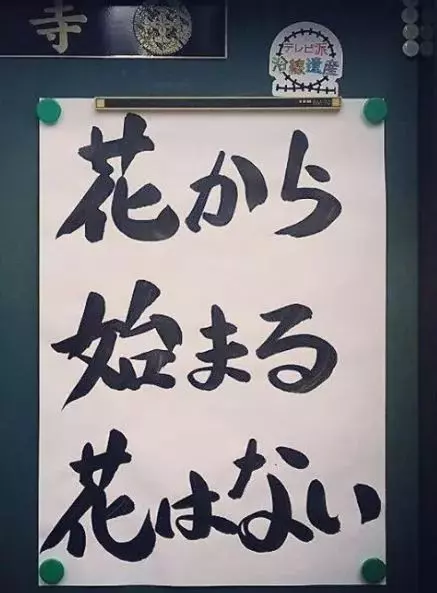 寺
テレビ派
沿線遺産
花から
始まる
花はない